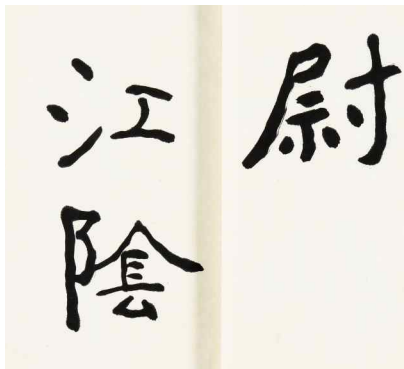 尉
江陰